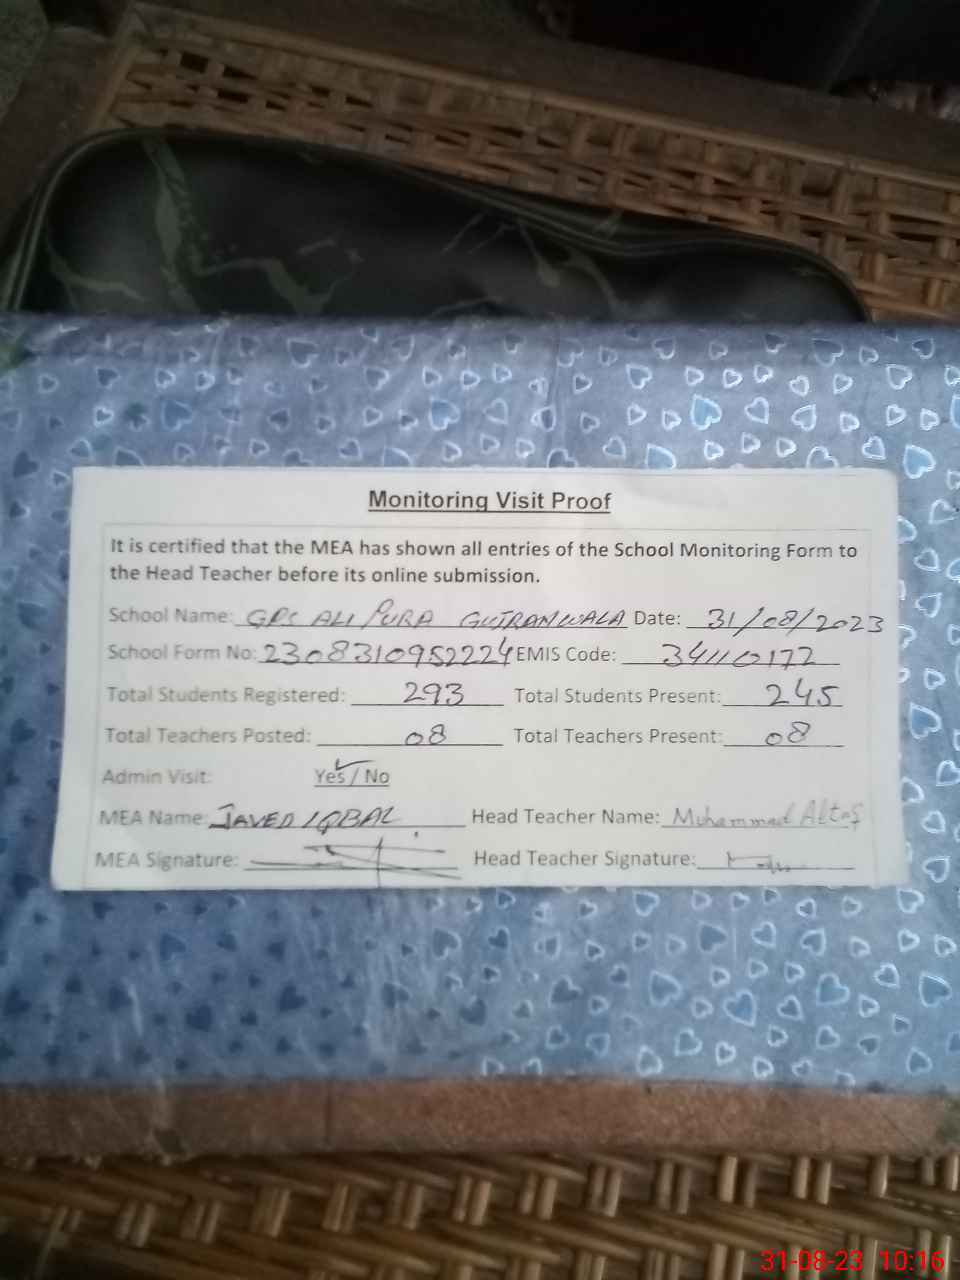 Monitoring Visit Proof
It is certified that the MEA has shown all entries of the School Monitoring Form to
the Head Teacher before its online submission.
School Name: GPS ALI PURA GUJRANWALA Date: 31/08/2023
School Form No: 2308310952224 EMIS Code: 34110172
Total Students Registered: 293 Total Students Present: 245
Total Teachers Posted: 08 Total Teachers Present: 08
Admin Visit: Yes / No
MEA Name: JAVED IQBAL Head Teacher Name: Muhammad Altaf
MEA Signature: Head Teacher Signature:
31-08-23 10:16